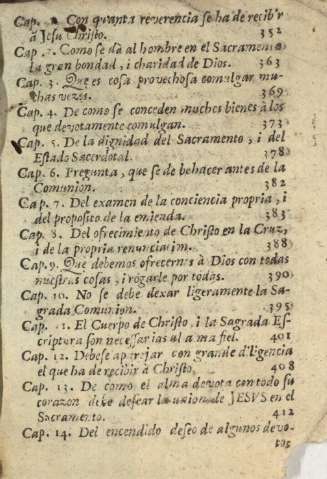 Cap. 1. Con quanta reverencia se ha de recibir
à Jesu Christo. 352
Cap. 2. Como se dà al hombre en el Sacramento
la gran bondad, i charidad de Dios. 363
Cap. 3. Que es cosa provechosa comulgar mu-
chas vezes. 369
Cap. 4. De como se conceden muchos bienes à los
que devotamente comulgan. 373
Cap. 5. De la dignidad del Sacramento, i del
Estado Sacerdotal. 378
Cap. 6. Pregunta, que se debe hacer antes de la
Comunion. 382
Cap. 7. Del examen de la conciencia propria, i
del proposito de la emienda. 383
Cap. 8. Del ofrecimiento de Christo en la Cruz,
i de la propria renunciacion. 388
Cap. 9. Que debemos ofrecernos à Dios con todas
nuestras cosas, i rogarle por todos. 390
Cap. 10. No se debe dexar ligeramente la Sa-
grada Comunion. 395
Cap. 11. El Cuerpo de Christo, i la Sagrada Es-
criptura son necessarias al alma fiel. 401
Cap. 12. Debese aparejar con grande diligencia
el que ha de recibir à Christo. 408
Cap. 13. De como el alma devota con todo su
corazon debe desear la union de JESUS en el
Sacramento. 412
Cap. 14. Del encendido deseo de algunos devo-
tos